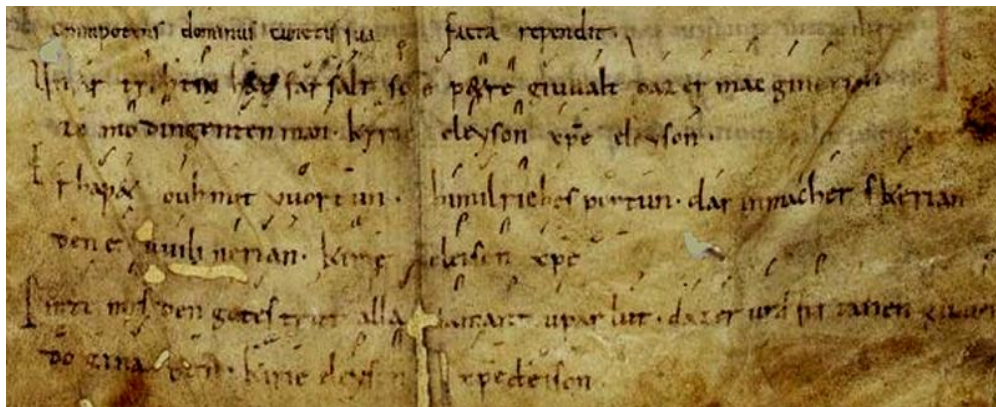 omnipotens dominus cunctis sua facta rependit.
Unsar trohtin hat farsalt sce petre giuualt daz er mac ginerian
ze imo dingenten man. kyrie eleyson xpe eleyson.
Er hapet ouh mit vuortun himilriches portun. dar in mach er skerian
den er uuili nerian. kirie eleison xpe
den gotes trut alla samant upar lut. daz er uns firtanen giuuer
do kirie eleyson xpe eleison.